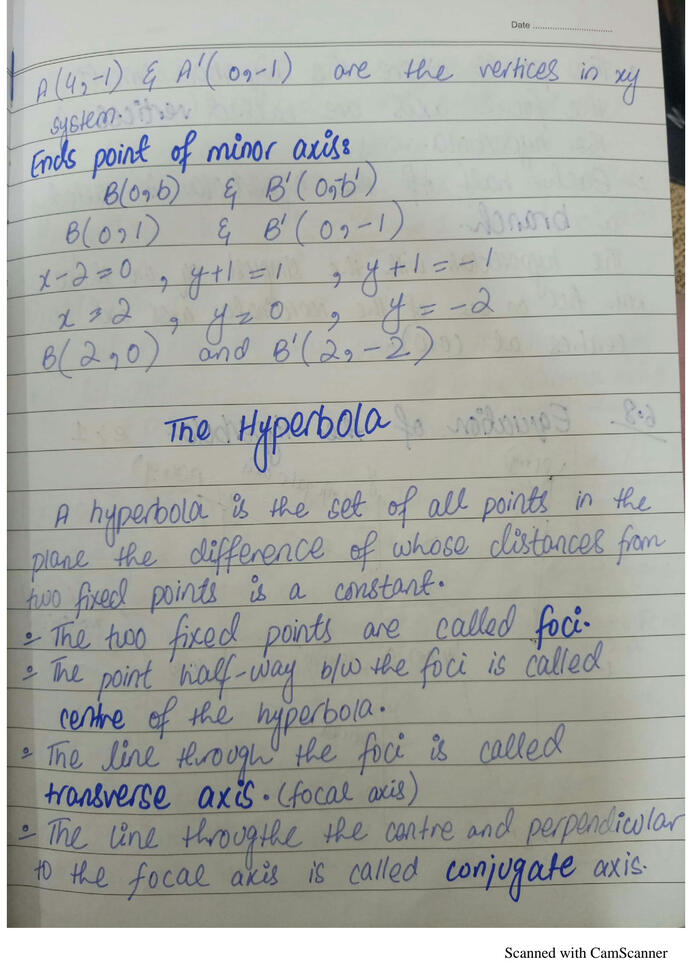 Date
A(4,-1) & A'(0,-1) are the vertices in xy
system.
Ends point of minor axis:
B(0,b) & B'(0,b')
B(0,1) & B'(0,-1)
x-2=0 , y+1=1 , y+1=-1
x=2 , y=0 , y=-2
B(2,0) and B'(2,-2)
The Hyperbola
A hyperbola is the set of all points in the
plane the difference of whose distances from
two fixed points is a constant.
The two fixed points are called foci.
The point half-way b/w the foci is called
centre of the hyperbola.
The line through the foci is called
transverse axis. (focal axis)
The line througthe the centre and perpendicular
to the focal axis is called conjugate axis.
Scanned with CamScanner